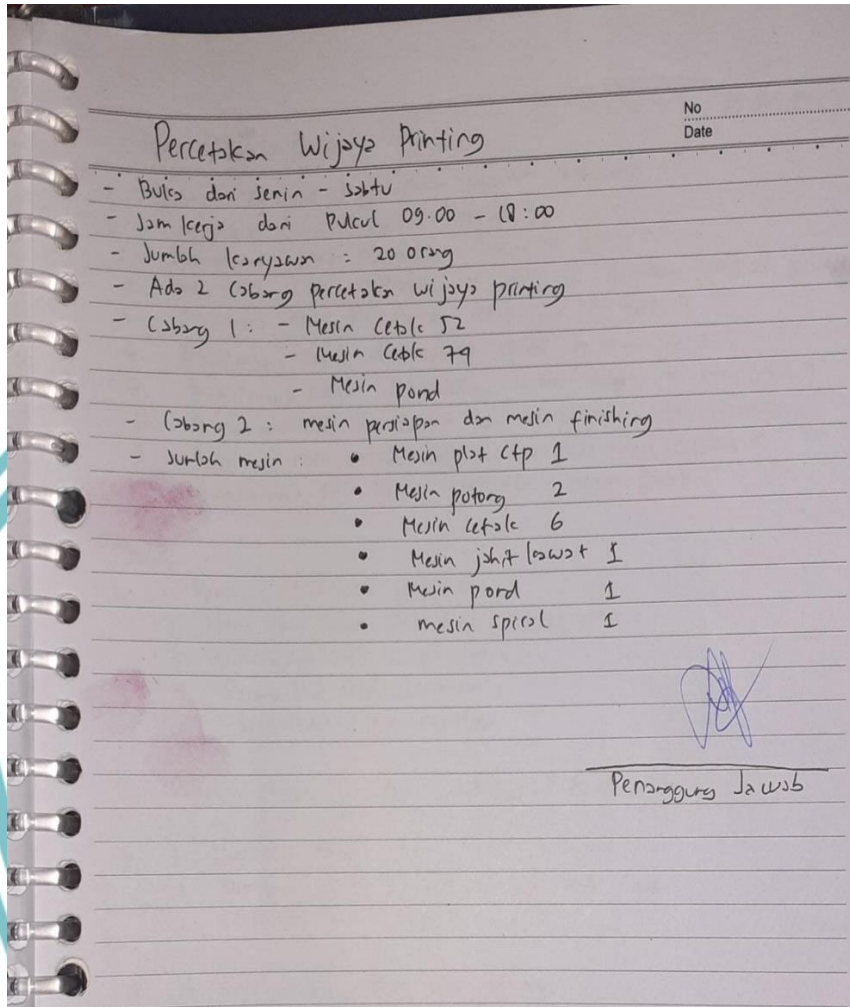 No
Date
Percetakan Wijaya Printing
- Buka dari Senin - Sabtu
- Jam kerja dari Pukul 09.00 - 18:00
- Jumlah karyawan : 20 orang
- Ada 2 Cabang percetakan wijaya printing
- Cabang 1 : - Mesin Cetak 52
- Mesin Cetak 74
- Mesin pond
- Cabang 2 : mesin persiapan dan mesin finishing
- Jumlah mesin : • Mesin plat ctp 1
• Mesin potong 2
• Mesin cetak 6
• Mesin jahit kawat 1
• Mesin pond 1
• mesin spiral 1
Penanggung Jawab